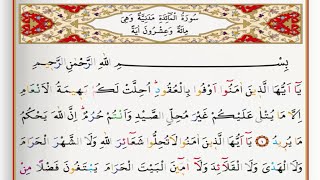 سُورَةُ الْمَائِدَةِ مَدَنِيَّةٌ وَهِيَ
مِائَةٌ وَعِشْرُونَ آيَةً
بِسْمِ اللهِ الرَّحْمٰنِ الرَّحِيمِ
يَا اَيُّهَا الَّذِينَ اٰمَنُوا اَوْفُوا بِالْعُقُودِ اُحِلَّتْ لَكُمْ بَهِيمَةُ الْاَنْعَامِ
اِلَّا مَا يُتْلٰى عَلَيْكُمْ غَيْرَ مُحِلِّى الصَّيْدِ وَاَنْتُمْ حُرُمٌ اِنَّ اللهَ يَحْكُمُ
مَا يُرِيدُ ١ يَا اَيُّهَا الَّذِينَ اٰمَنُوا لَا تُحِلُّوا شَعَائِرَ اللهِ وَلَا الشَّهْرَ الْحَرَامَ
وَلَا الْهَدْىَ وَلَا الْقَلَائِدَ وَلَا اٰمِّينَ الْبَيْتَ الْحَرَامَ يَبْتَغُونَ فَضْلًا مِنْ